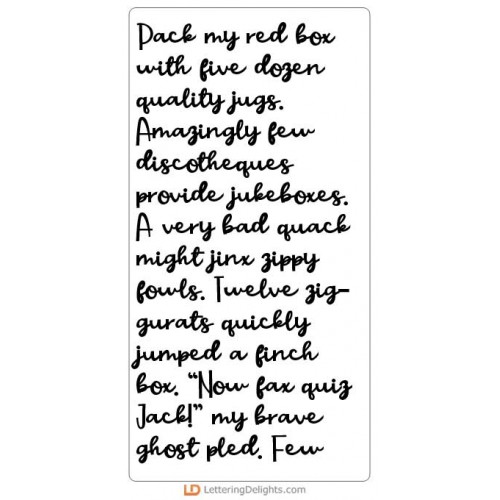 Pack my red box
with five dozen
quality jugs.
Amazingly few
discotheques
provide jukeboxes.
A very bad quack
might jinx zippy
fowls. Twelve zig-
gurats quickly
jumped a finch
box. “Now fax quiz
Jack!” my brave
ghost pled. Few
LD LetteringDelights.com